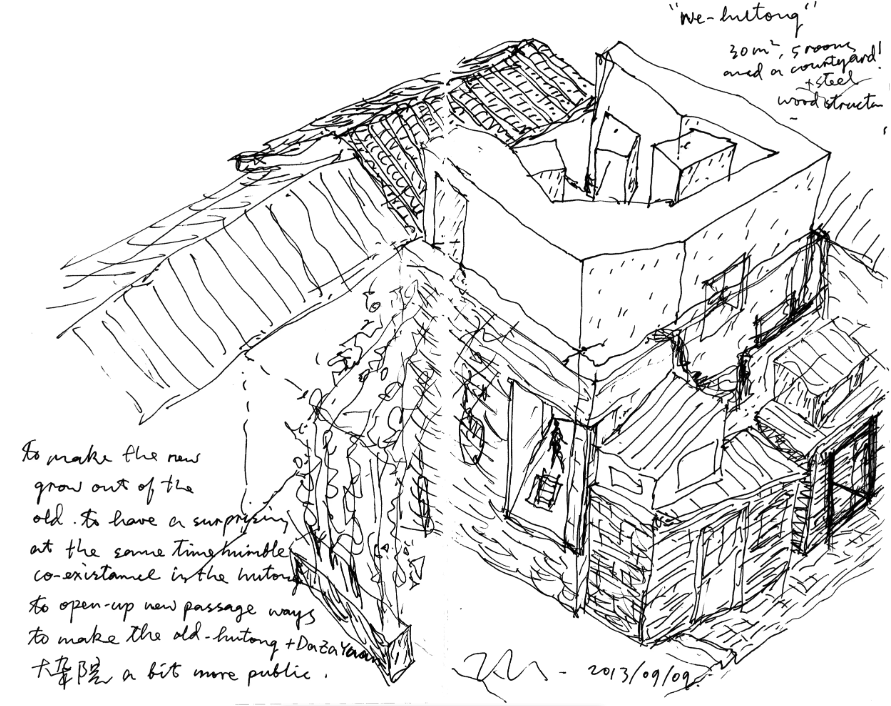 "we-hutong"
30m², 5 rooms
and a courtyard!
+ steel
wood structu
to make the new
grow out of the
old. to have a surprising
at the same time humble
co-existance in the hutong
to open-up new passage ways
to make the old-hutong + DaZaYuan
a bit more public.
- 2013/09/09.